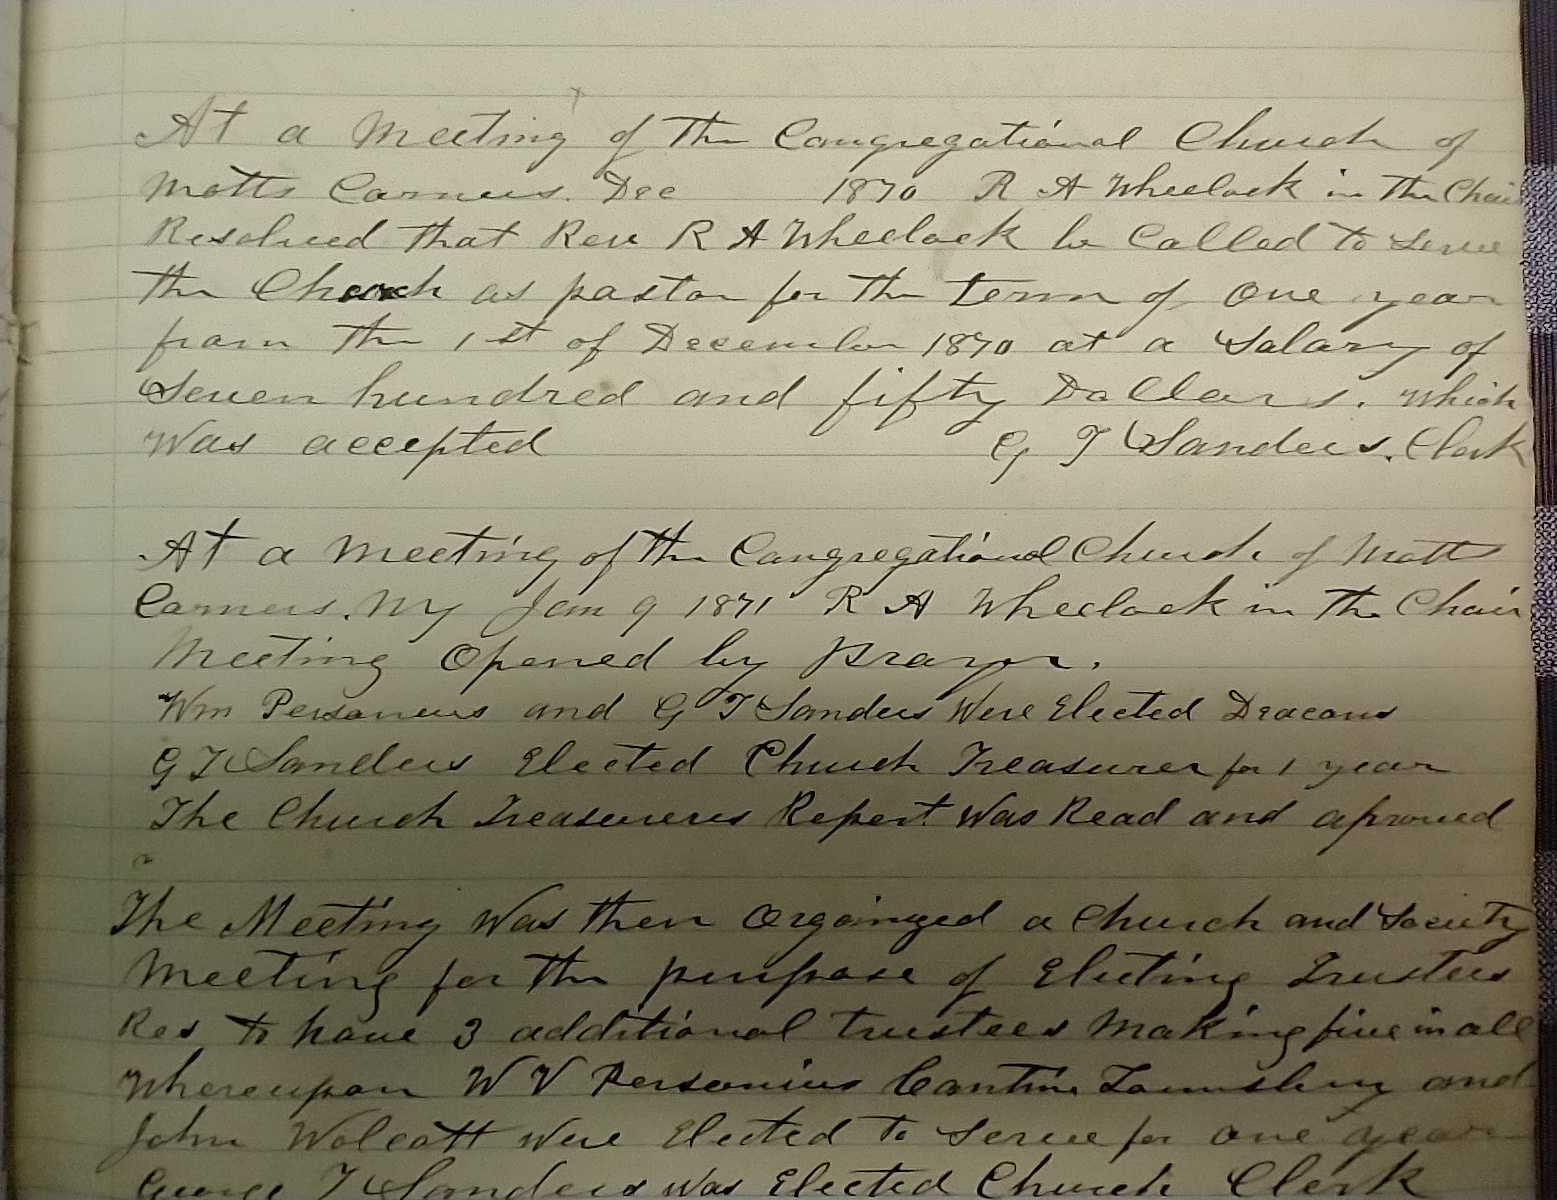 At a Meeting of the Congregational Church of
Motts Corners. Dec 1870 R A Wheelock in the Chair
Resolved that Rev R A Wheelock be Called to Serve
the Church as pastor for the term of One year
from the 1st of December 1870 at a Salary of
Seven hundred and fifty Dollars. Which
Was accepted G T Sanders. Clerk
At a Meeting of the Congregational Church of Motts
Corners. NY Jan 9 1871 R A Wheelock in the Chair
Meeting Opened by Prayer.
Wm Personeus and G T Sanders Were Elected Deacons
G T Sanders Elected Church Treasurer for 1 year
The Church Treasurers Report Was Read and aproved
The Meeting Was then Orgainzed a Church and Society
Meeting for the purpose of Electing Trustees
Res to have 3 additional trustees Making five in all
Whereupon W V Personius Cantine Lounsbery and
John Wolcott Were Elected to Serve for one year
George T Sanders Was Elected Church Clerk